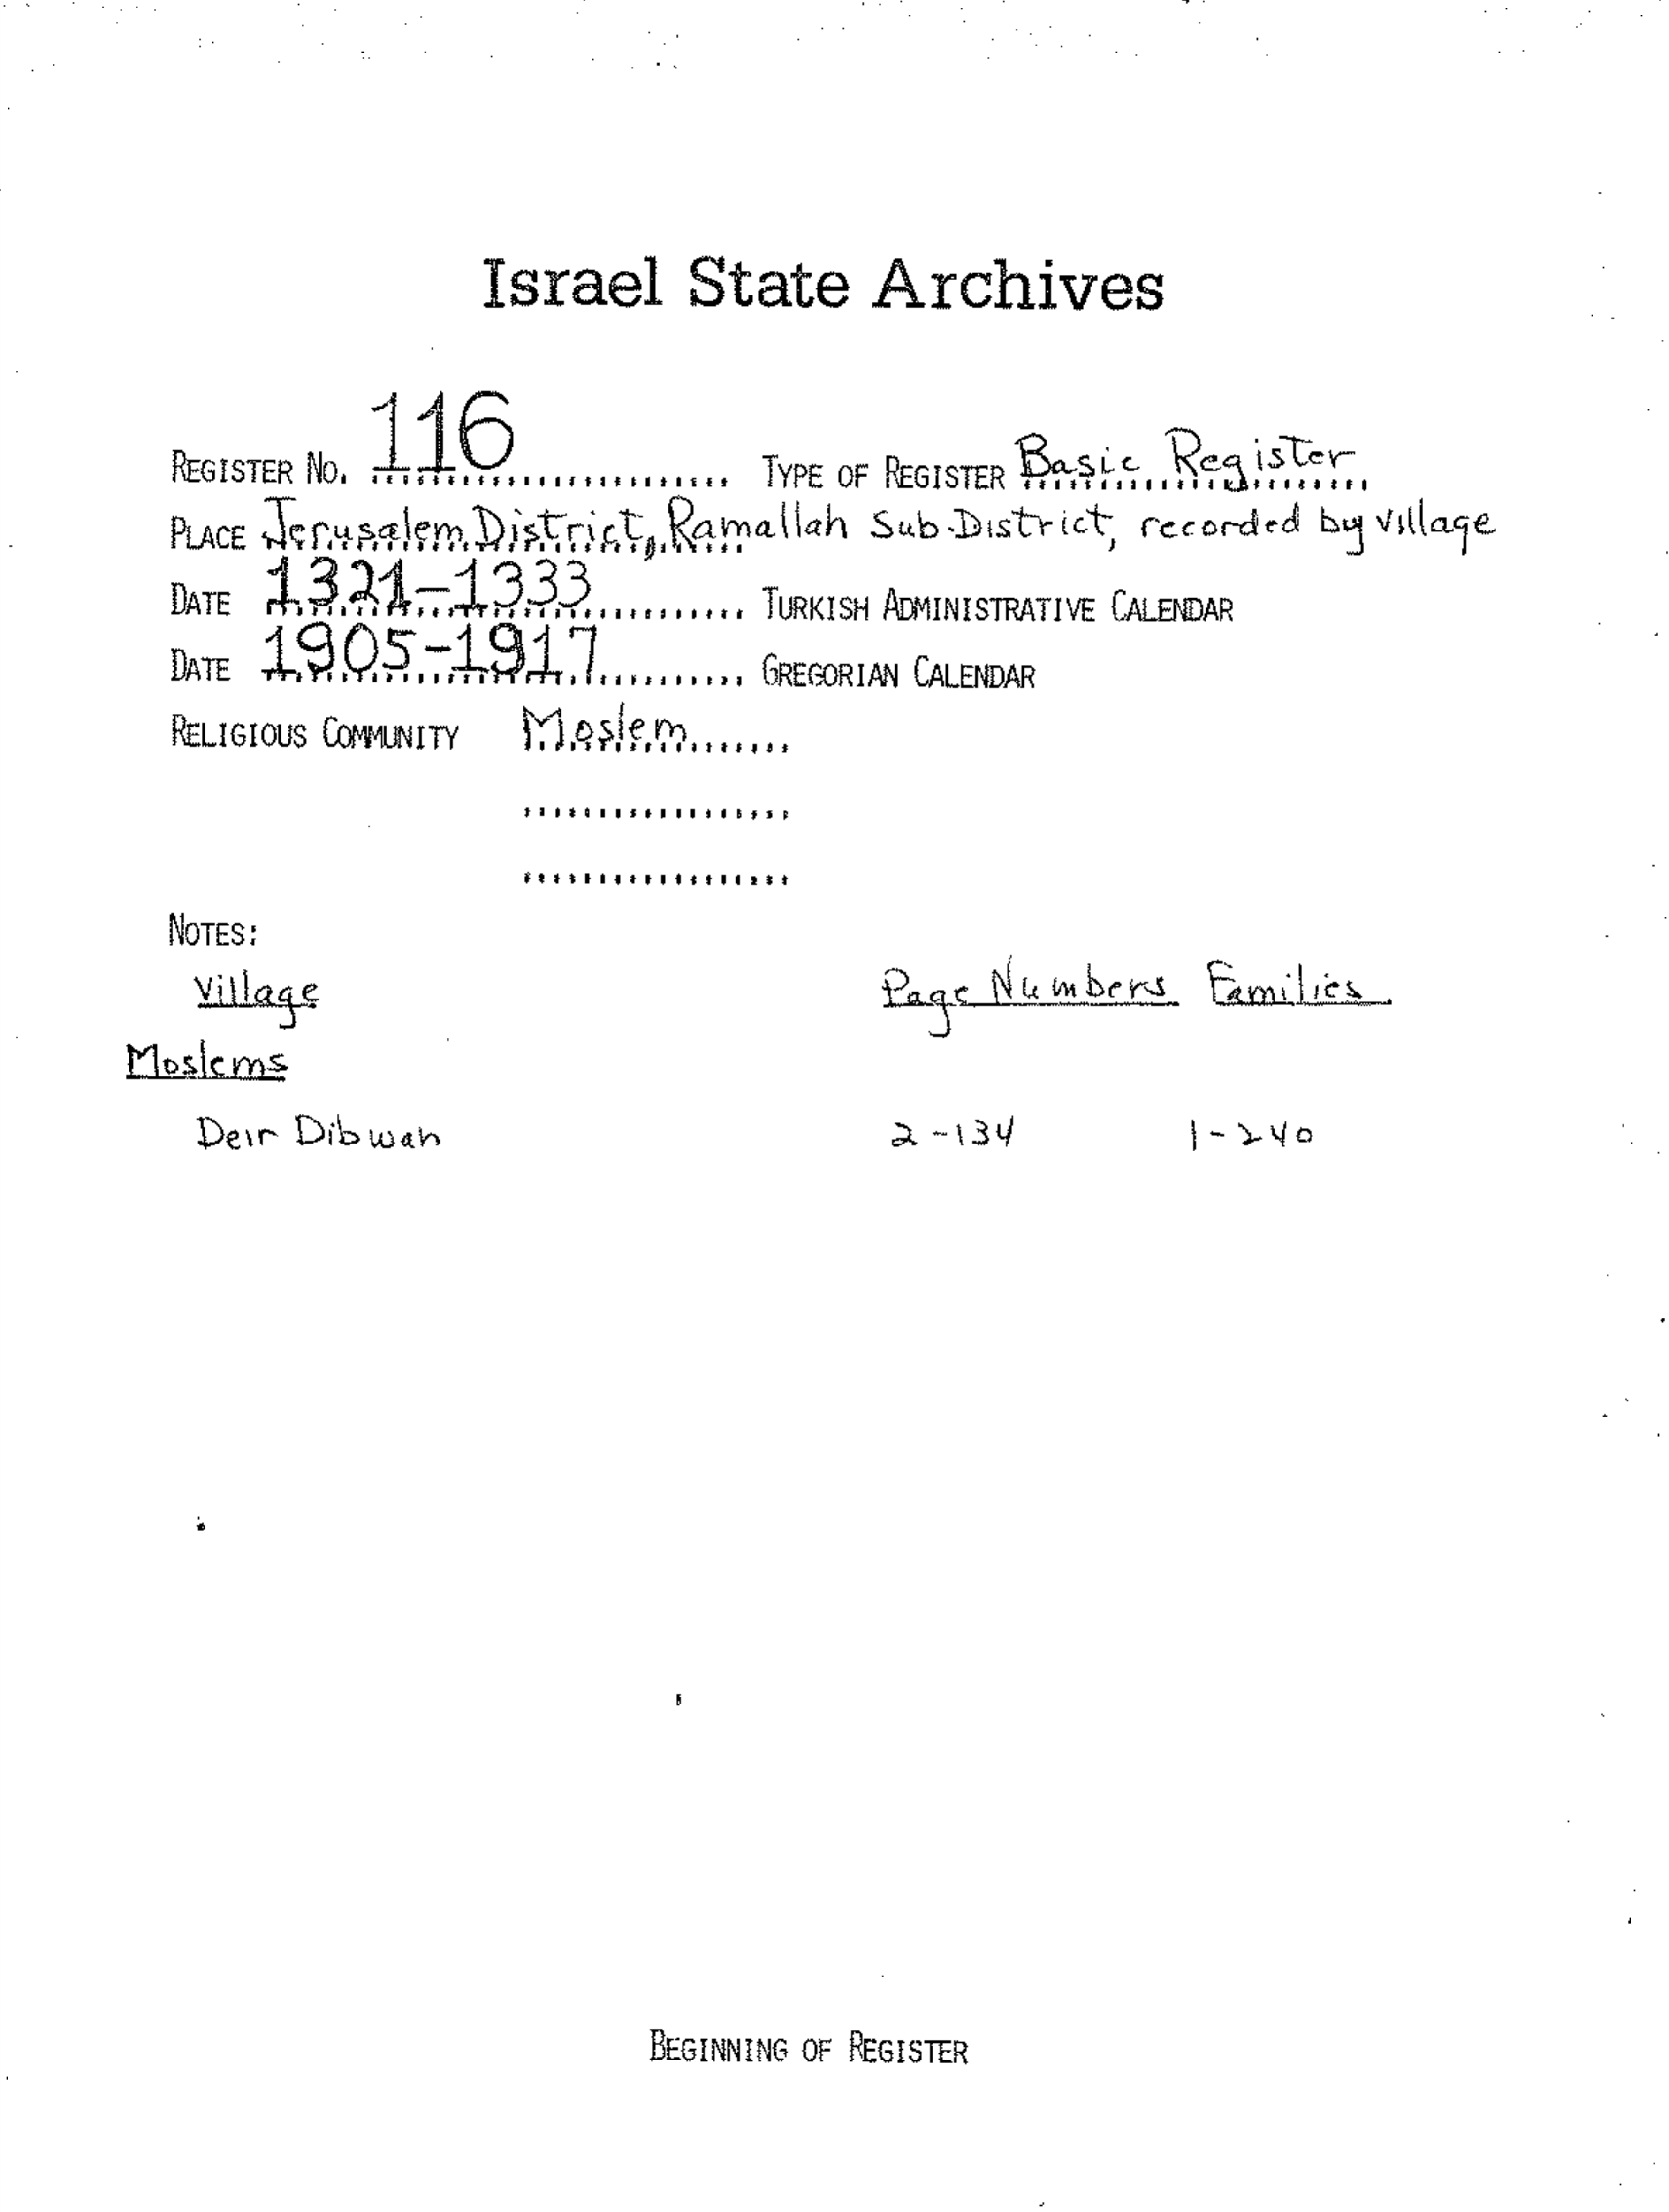 Israel State Archives
REGISTER NO. 116 TYPE OF REGISTER Basic Register
PLACE Jerusalem District, Ramallah Sub-District, recorded by village
DATE 1321-1333 TURKISH ADMINISTRATIVE CALENDAR
DATE 1905-1917 GREGORIAN CALENDAR
RELIGIOUS COMMUNITY Moslem
NOTES:
Village Page Numbers Families
Moslems
Deir Dibwan 2-134 1-240
BEGINNING OF REGISTER